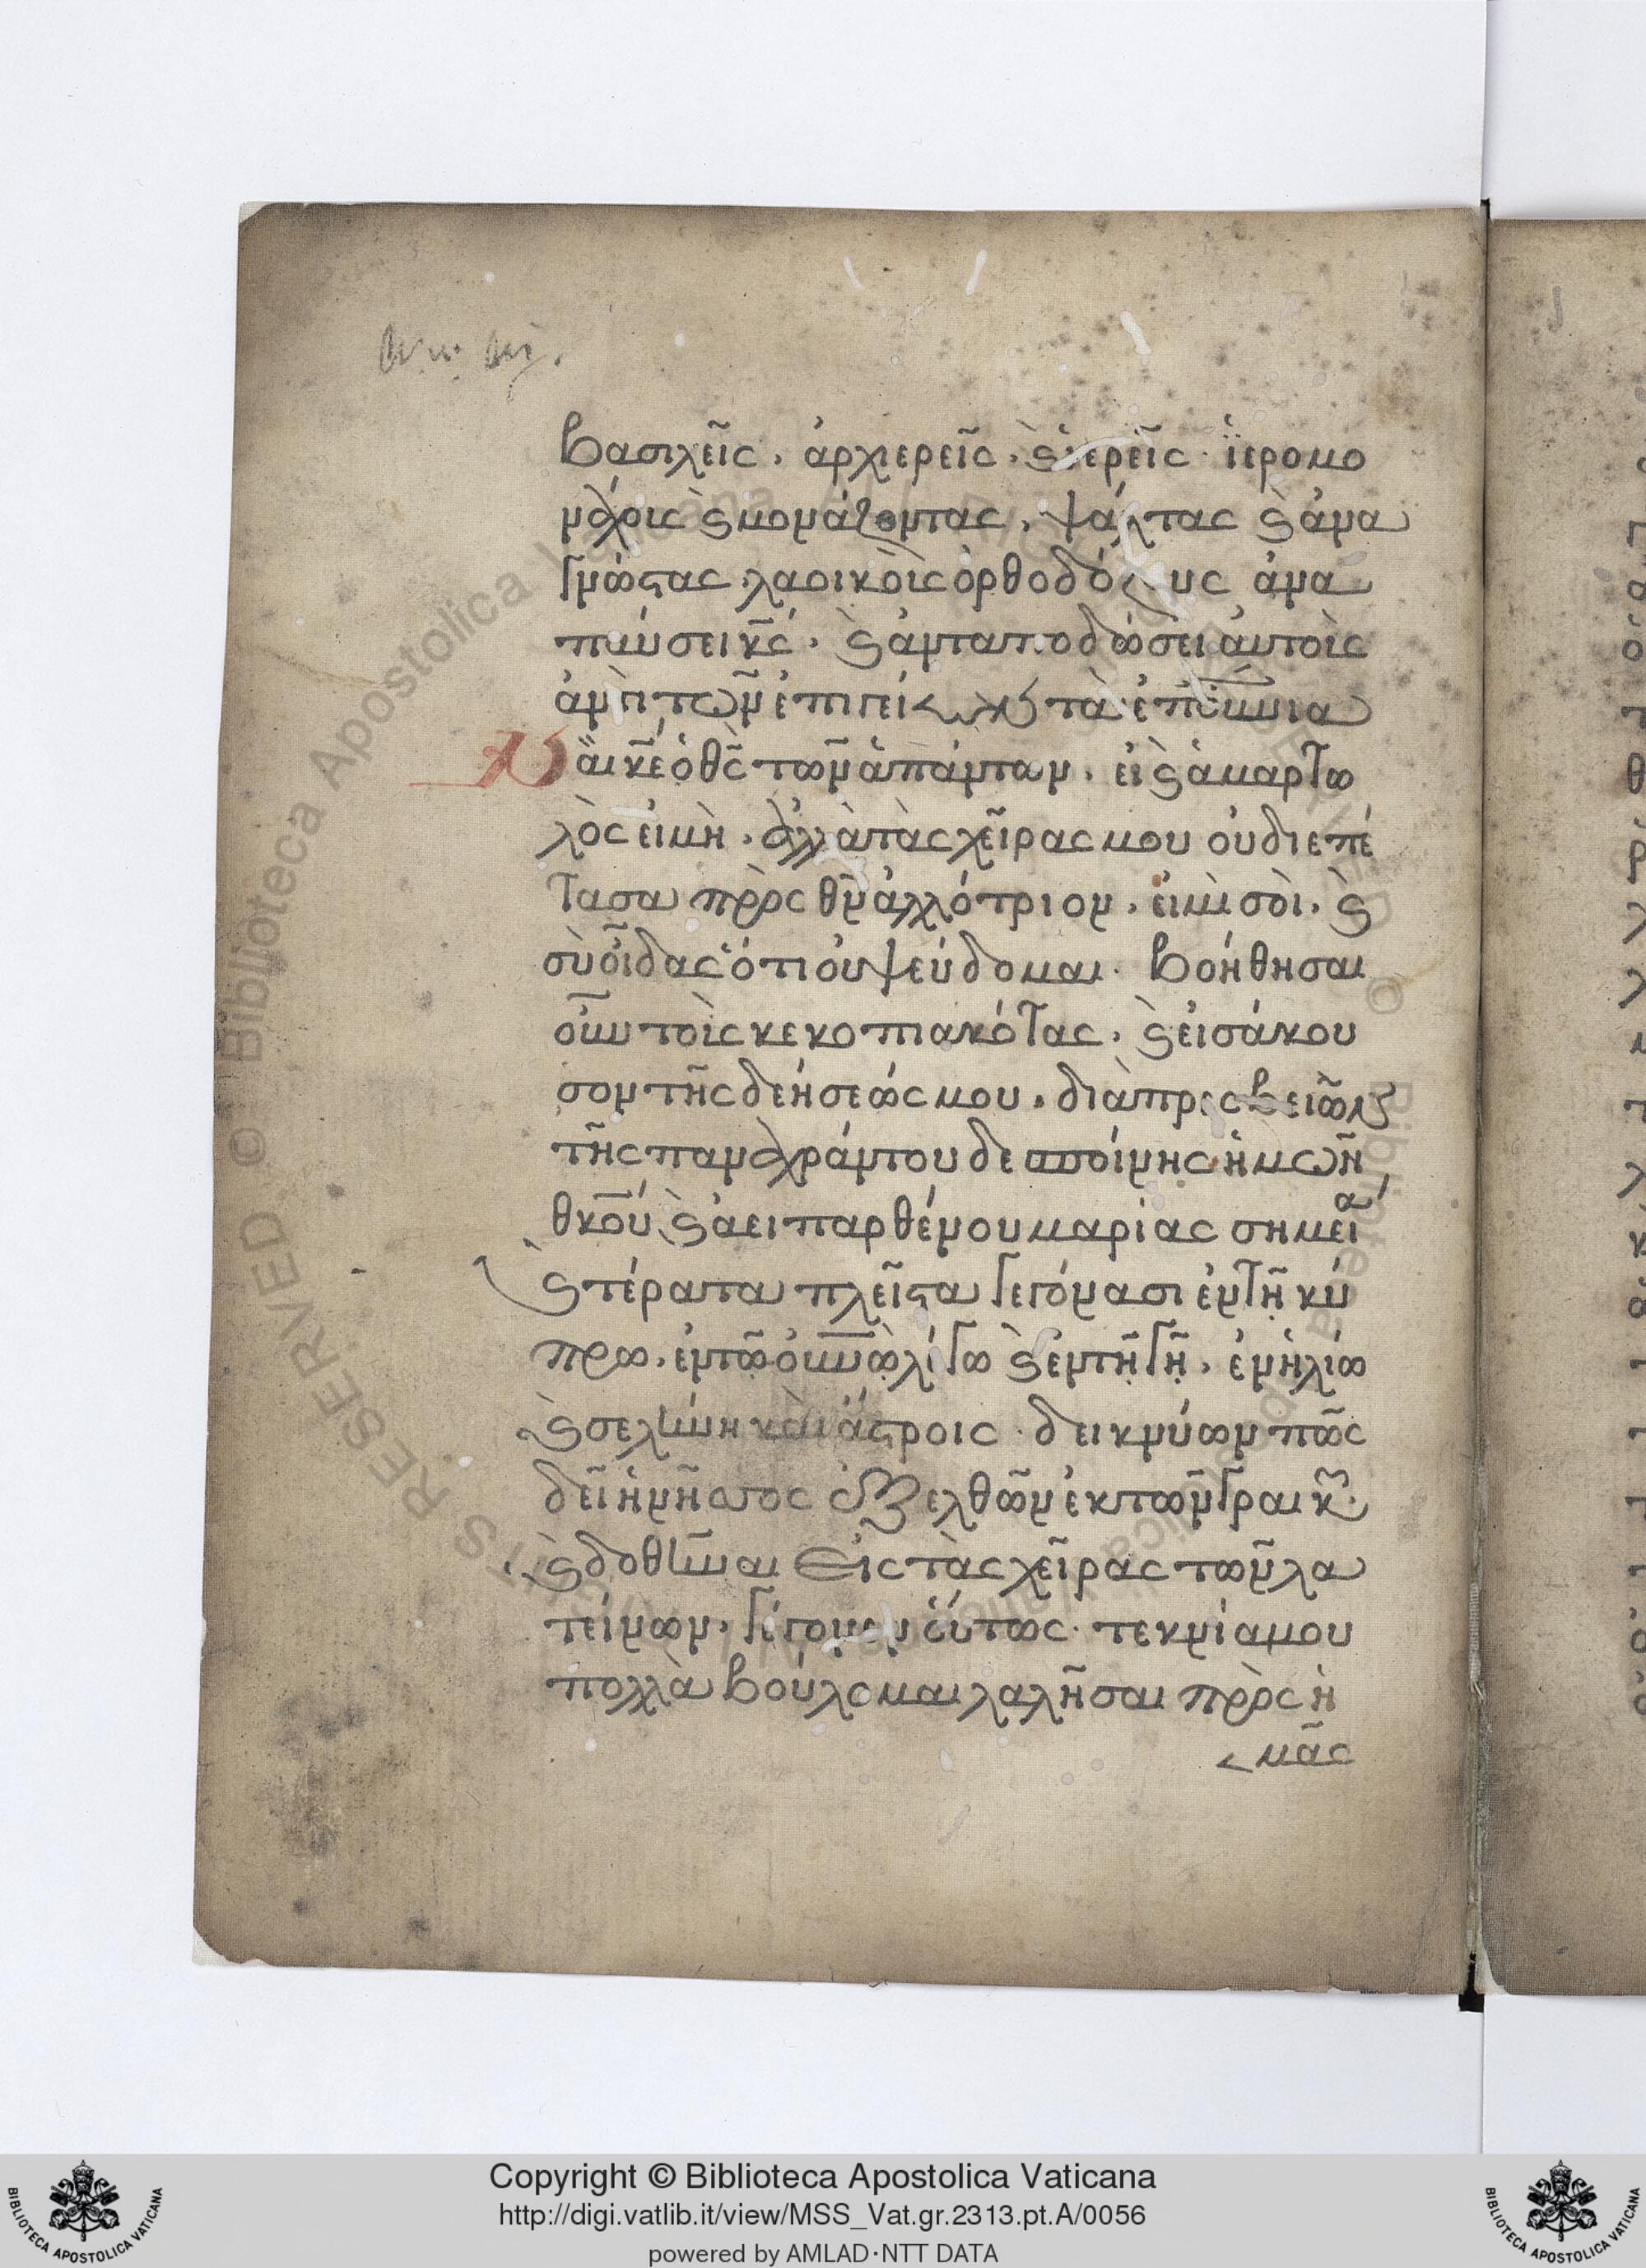 βασιλεῖς, ἀρχιερεῖς, ϗ ἱερεῖς ϊερομο
νάχοις ϗ μονάζοντας, ψάλτας ϗ ἀνα
γνώστας, λαοικοὶς ὀρθοδό υς ἀνα
παύσει κς, ϗ ἀνταποδώσει ἀυτοὶς
ἀντὶ τῶν ἐπιγεί τὰ
Ναι κε ὁ θς τῶν ἁπάντων, εἰ ϗ ἁμαρτω
λὸς εἰμὴ, ἀλλὰ τὰς χεῖρας μου οὐ διεπέ
τασα πρὸς θν ἀλλότριον, εἰμὶ σοὶ, ϗ
σὺ οἶδας ὅτι οὐ ψεύδομαι. βοήθησαι
οὖν τοὶς κεκοπιακότας, ϗ εἰσάκου
σον τῆς δεήσεώς μου, διὰ πρεσβειῶν
τῆς παναχράντου δεσποίνης ἡμῶν
θκου ϗ ἀειπαρθένου μαρίας σημεῖα
ϗ τέρατα πλεῖστα γεγόνασι ἐν τῆ κύ
πρω, ἐν τῶ οὐνῶ λέγω ϗ ἐν τῆ γῆ, ἐν ἡλίω
ϗ σελήνη καὶ ἄστροις δεικνύων πῶς
δεῖ ἡ νῆσος ἐξελθῶν ἐκ τῶν γραικῶν
ϗ δοθῆναι εἰς τὰς χεῖρας τῶν λα
τείνων, γέγονεν οὕτως. τεκνία μου
πολλὰ βούλομαι λαλῆσαι πρὸς ἡ
μᾶς
Copyright © Biblioteca Apostolica Vaticana
http://digi.vatlib.it/view/MSS_Vat.gr.2313.pt.A/0056
powered by AMLAD·NTT DATA
BIBLIOTECA APOSTOLICA VATICANA
BIBLIOTECA APOSTOLICA VATICANA